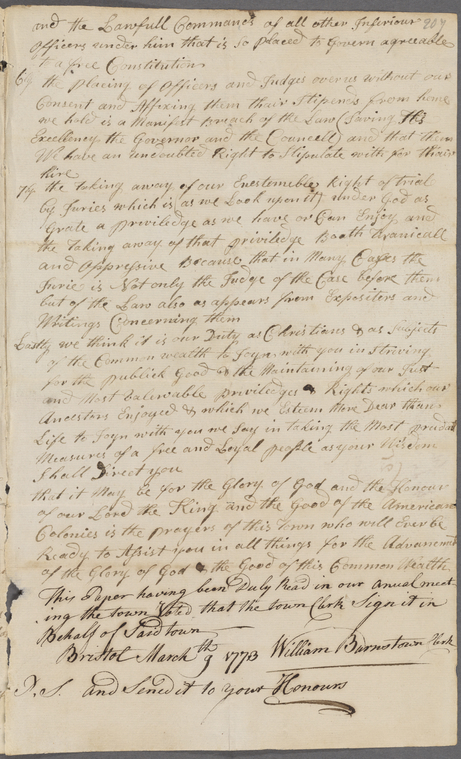 and the Lawfull Commands of all other Inferiour 207
Officers under him that is so placed to Govern agreeable
to a free Constitution
6ly the placing of Officers and Judges over us without our
Consent and Affixing them thair Stipends from home
we hold is a Manifest breach of the Law (Saving His
Excellency the Governor and the Councell) and that then
We have an undoubted Right to Stipulate with for thair
hire
7ly the taking away of our Enestemible Right of trial
by Juries which is (as we Look upon it) under God as
Grate a priviledge as we have or Can Enjoy and
the taking away of that priviledge Boath tiranicall
and Oppressive Because that in Many Cases the
Jurie is Not only the Judge of the Case before them
but of the Law also as appears from Expositers and
Writings Concerning them
Lastly we think it is our Duty as Christians & as Subjects
of the Common wealth to Joyn with you in Striving
for the publick Good & the Maintaining of our Just
and Most valuable priviledges & Rights which our
Ancestors Enjoyed & which we Esteem More Dear then
Life to Joyn with you we Say in taking the Most prudent
Measures of a free and Loyal people as your Wisdom
Shall Direct you
that it May be for the Glory of God and the Honour
of our Lord the King and the Good of the American
Colonies is the prayers of this Town who will Ever be
Ready to Assist you in all things for the Advancment
of the Glory of God & the Good of this Common Wealth
This Paper having been Duly Read in our anual meet
ing the town Voted that the town Clark Sign it in
Behalf of Said town
Bristol March 9th 1773 William Burns town Clark
P.S. and Send it to your Honours